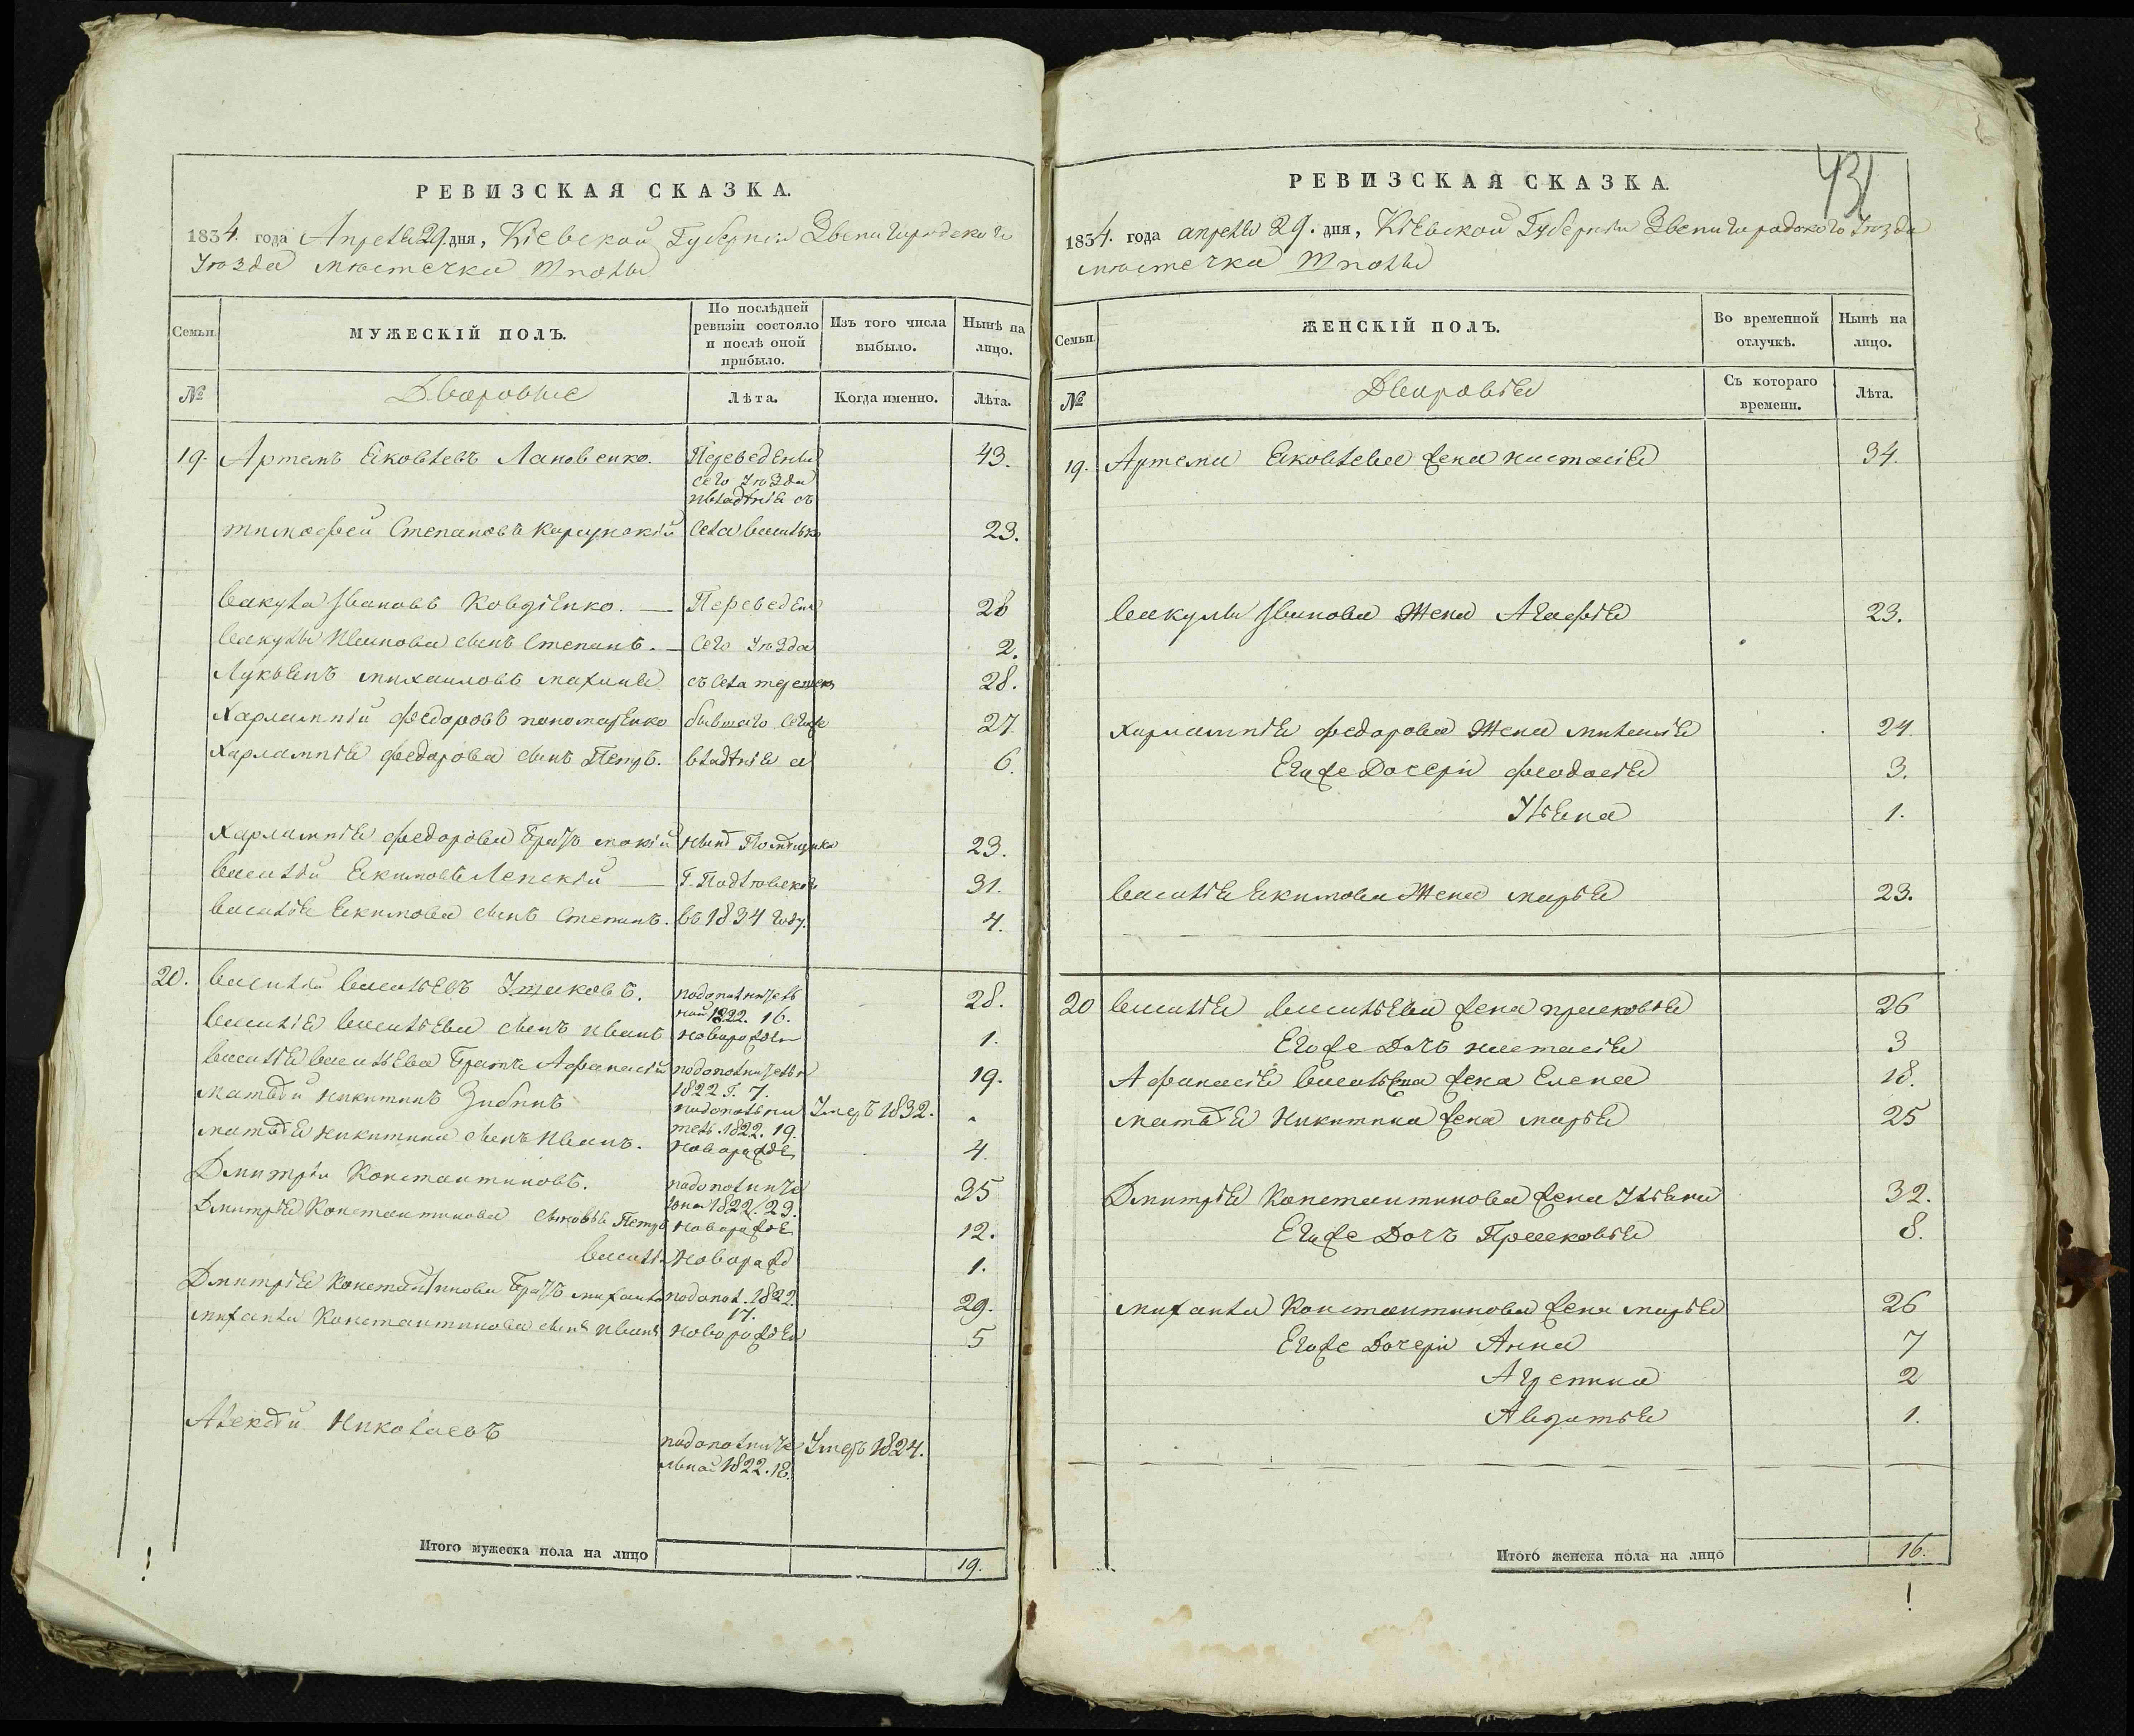 РЕВИЗСКАЯ СКАЗКА.
1834. года Апреля 29. дня, Кіевской Губерніи Звенигородского
Уѣзда мѣстечка Шполы
Семьи.
МУЖЕСКІЙ ПОЛЪ.
По послѣдней ревизіи состояло и послѣ оной прибыло.
Изъ того числа выбыло.
Нынѣ на лицо.
№
Дворовые
Лѣта.
Когда именно.
Лѣта.
19. Артемъ Яковлевъ Лановенко. Переведены 43.
сего Уѣзда
владѣнія съ
тимофей Степановъ села 23.
вакула Ивановъ Переведены 28
вакулы Иванова сынъ Степанъ. Сего Уѣзда 2.
Лукьянъ михаиловъ съ села 28.
Харлампій федоровъ пономаренко бывшего 27.
Харлампія федорова сынъ Петръ. владѣнія 6.
Харлампія федорова братъ мокій нынѣ Помѣщика 23.
василій Якимовъ Ленскій 31.
василія Якимова сынъ Степанъ. въ 1834 году. 4.
20. василій васильевъ Ушаковъ. подополнитель 28.
ной 1822. 16.
василія васильева сынъ иванъ новорожден 1.
василія васильева братъ Афанасій подополнительн 19.
1822 г. 7.
матвѣй никитинъ Зибинъ подополни Умеръ 1832. -
тель. 1822. 19.
матвѣя никитина сынъ иванъ. новорожде 4.
Дмитрій Константиновъ. подополните 35
льной 1822. 23.
Дмитрія Константинова сыновья Петръ новорожде 12.
василій новорожд 1.
Дмитрія Константинова братъ михаила подопол. 1822. 29.
17.
михаила Константинова сынъ иванъ новорожден 5
Алексѣй николаевъ
подополните Умеръ 1824.
льной 1822. 18.
Итого мужеска пола на лицо 19.
431
РЕВИЗСКАЯ СКАЗКА.
1834. года апреля 29. дня, Кіевской Губерніи Звенигородского Уѣзда
мѣстечка Шполы
Семьи.
ЖЕНСКІЙ ПОЛЪ.
Во временной отлучкѣ.
Нынѣ на лицо.
№
Дворовыя
Съ котораго времени.
Лѣта.
19. Артема Яковлева жена настасія 34.
вакулы Иванова Жена Агафія 23.
харлампія федорова Жена миланія 24.
Егоже Дочери феодосія 3.
Ульяна 1.
василія Якимова Жена марья 23.
20 василія васильева жена прасковья 26
Егоже Дочь настасія 3
Афанасія васильева жена Елена 18.
матвѣя никитина жена марья 25
Дмитрія Константинова жена Ульяна 32.
Егоже Дочь Прасковья 8.
михаила Константинова жена марья 26
Егоже Дочери Анна 7
Агрепина 2
Авдотья 1.
Итого женска пола на лицо 16.